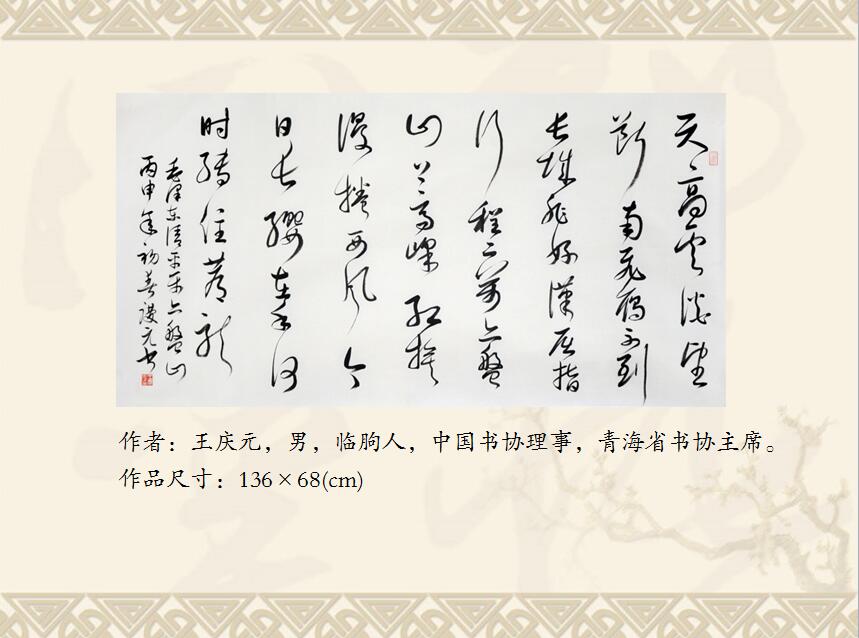 天高云淡望
断南飞雁不到
长城非好汉屈指
行程二万六盘
山上高峰红旗
漫捲西风今
日长缨在手何
时缚住苍龙
毛泽东清平乐六盘山
丙申年初春庆元书
作者：王庆元，男，临朐人，中国书协理事，青海省书协主席。
作品尺寸：136×68(cm)